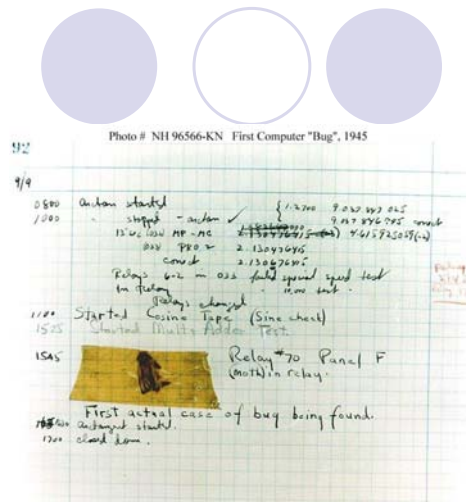 Photo # NH 96566-KN First Computer "Bug", 1945
92
9/9
0800 antan started
1000 " stopped - antan ✓
{ 1.2700 9.037 847 025
9.037 846 995 correct
13"uc (032) MP-MC 2.130476415 4.615925059(-2)
033 PRO 2 2.130476415
correct 2.130676415
Relays 6-2 in 033 failed special speed test
in relay " 10,000 test.
Relays changed
1100 Started Cosine Tape (Sine check)
1525 Started Multi Adder Test.
1545 Relay #70 Panel F
(moth) in relay.
First actual case of bug being found.
antangent started.
1700 closed down.